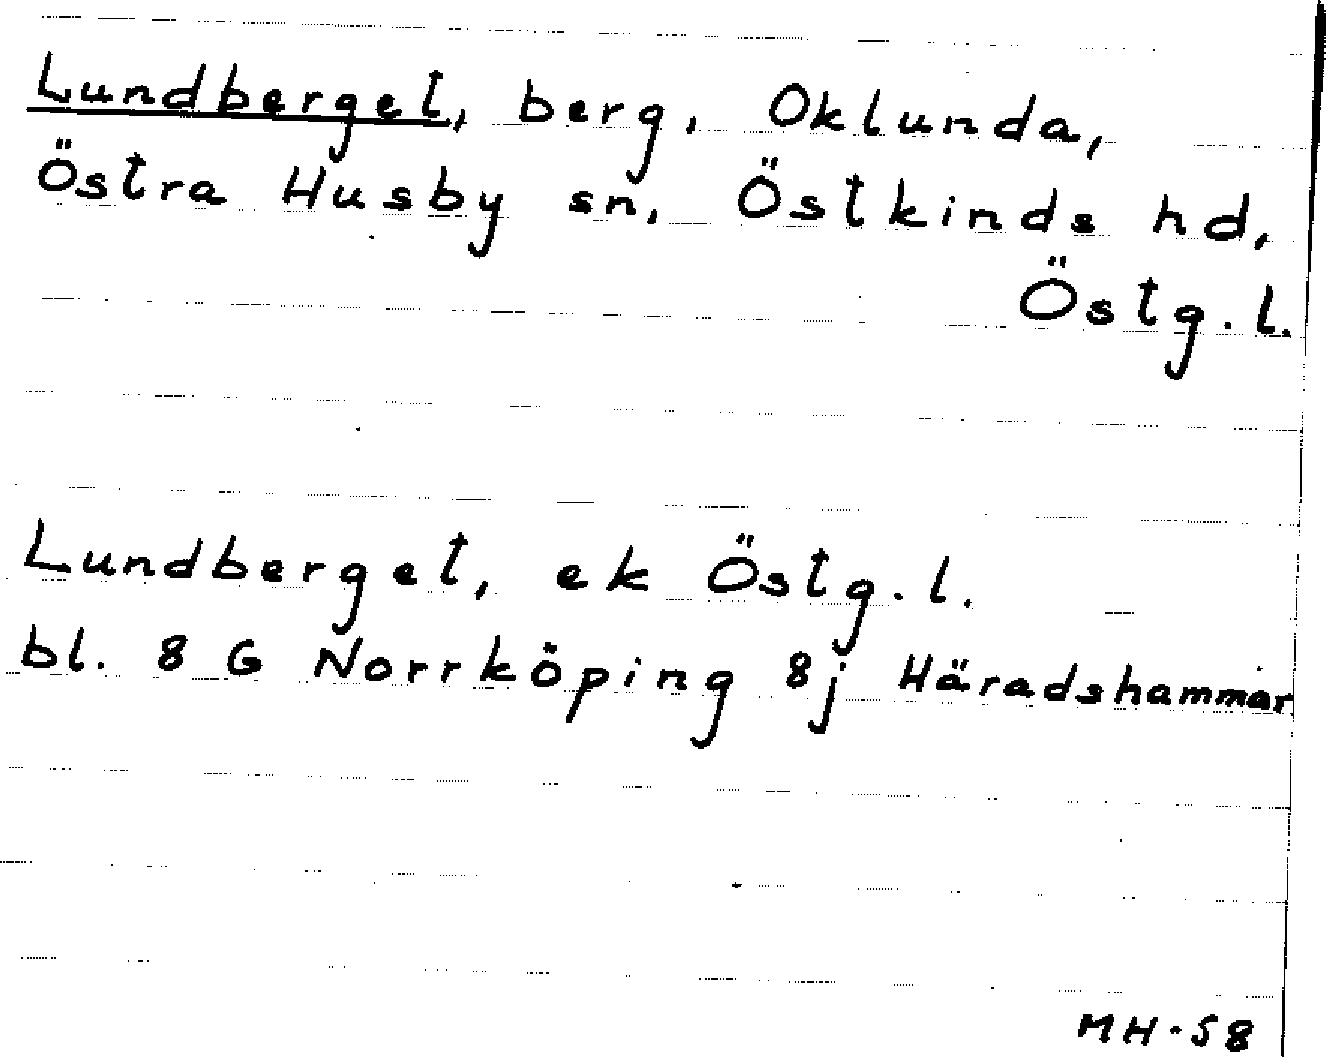 Lundberget, berg, Oklunda,
Östra Husby sn, Östkinds hd,
Östg.l.
Lundberget, ek Östg.l.
bl. 8 G Norrköping 8j Häradshammar
MH-58